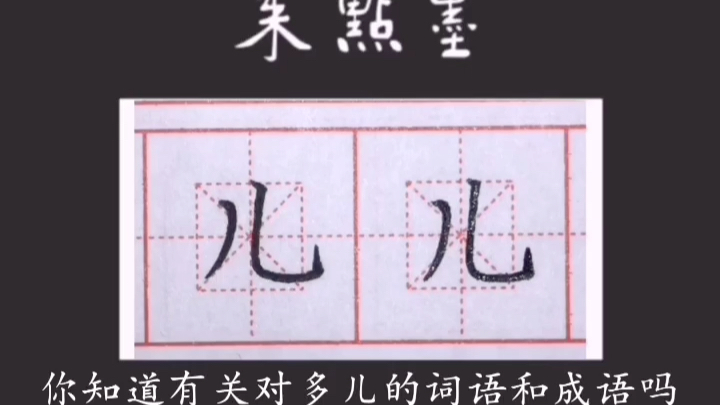 朱點墨
儿 儿
你知道有关对多儿的词语和成语吗